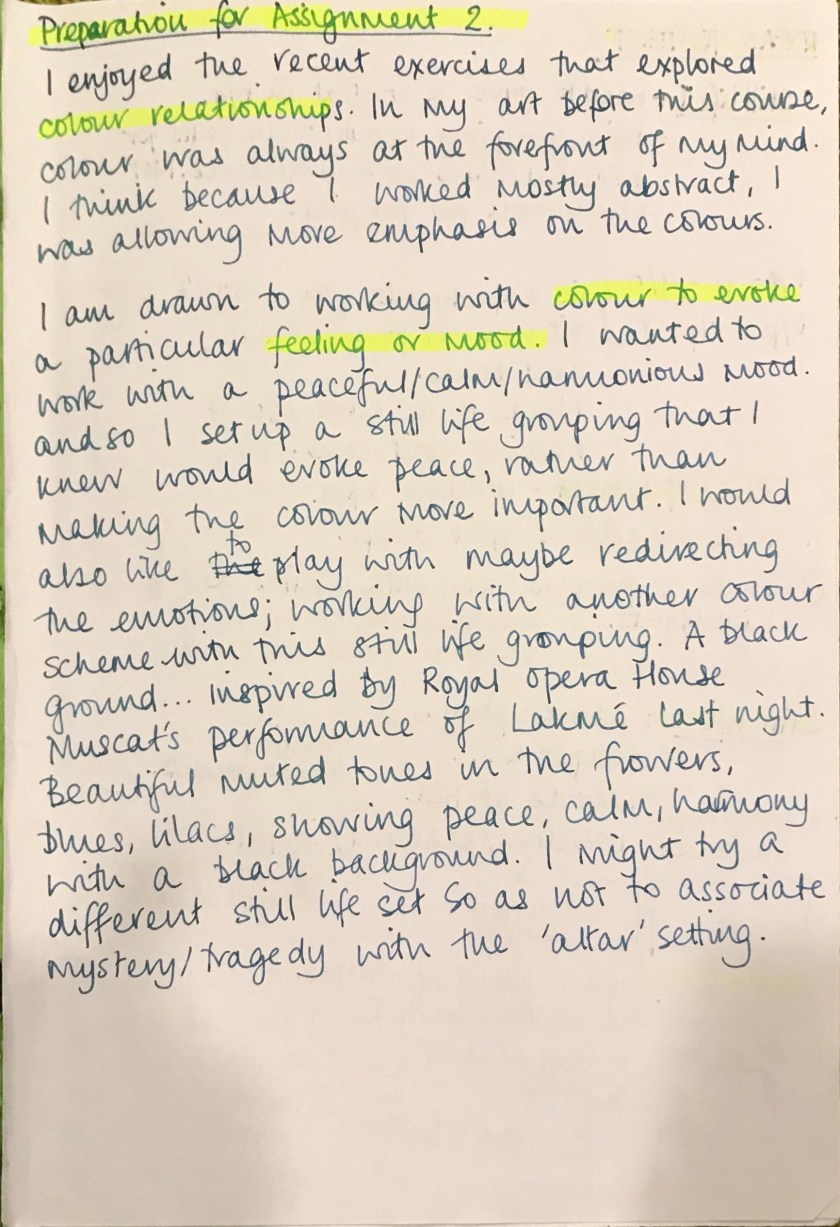 Preparation for Assignment 2.
I enjoyed the recent exercises that explored
colour relationships. In my art before this course,
colour was always at the forefront of my mind.
I think because I worked mostly abstract, I
was allowing more emphasis on the colours.
I am drawn to working with colour to evoke
a particular feeling or mood. I wanted to
work with a peaceful/calm/harmonious mood.
and so I set up a still life grouping that I
knew would evoke peace, rather than
making the colour more important. I would
also like the to play with maybe redirecting
the emotions; working with another colour
scheme with this still life grouping. A black
ground... inspired by Royal Opera House
Muscat's performance of Lakmé last night.
Beautiful muted tones in the flowers,
blues, lilacs, showing peace, calm, harmony
with a black background. I might try a
different still life set so as not to associate
mystery/tragedy with the 'altar' setting.